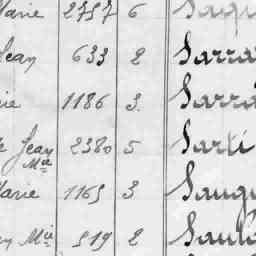 Marie 2757 6 Saqu
Jean 633 2 Sarra
rie 1186 3. Sarra
e Jean Mie 2380 5 Sarti
Marie 1165 3 Saugu
Mie 519 2 Saula